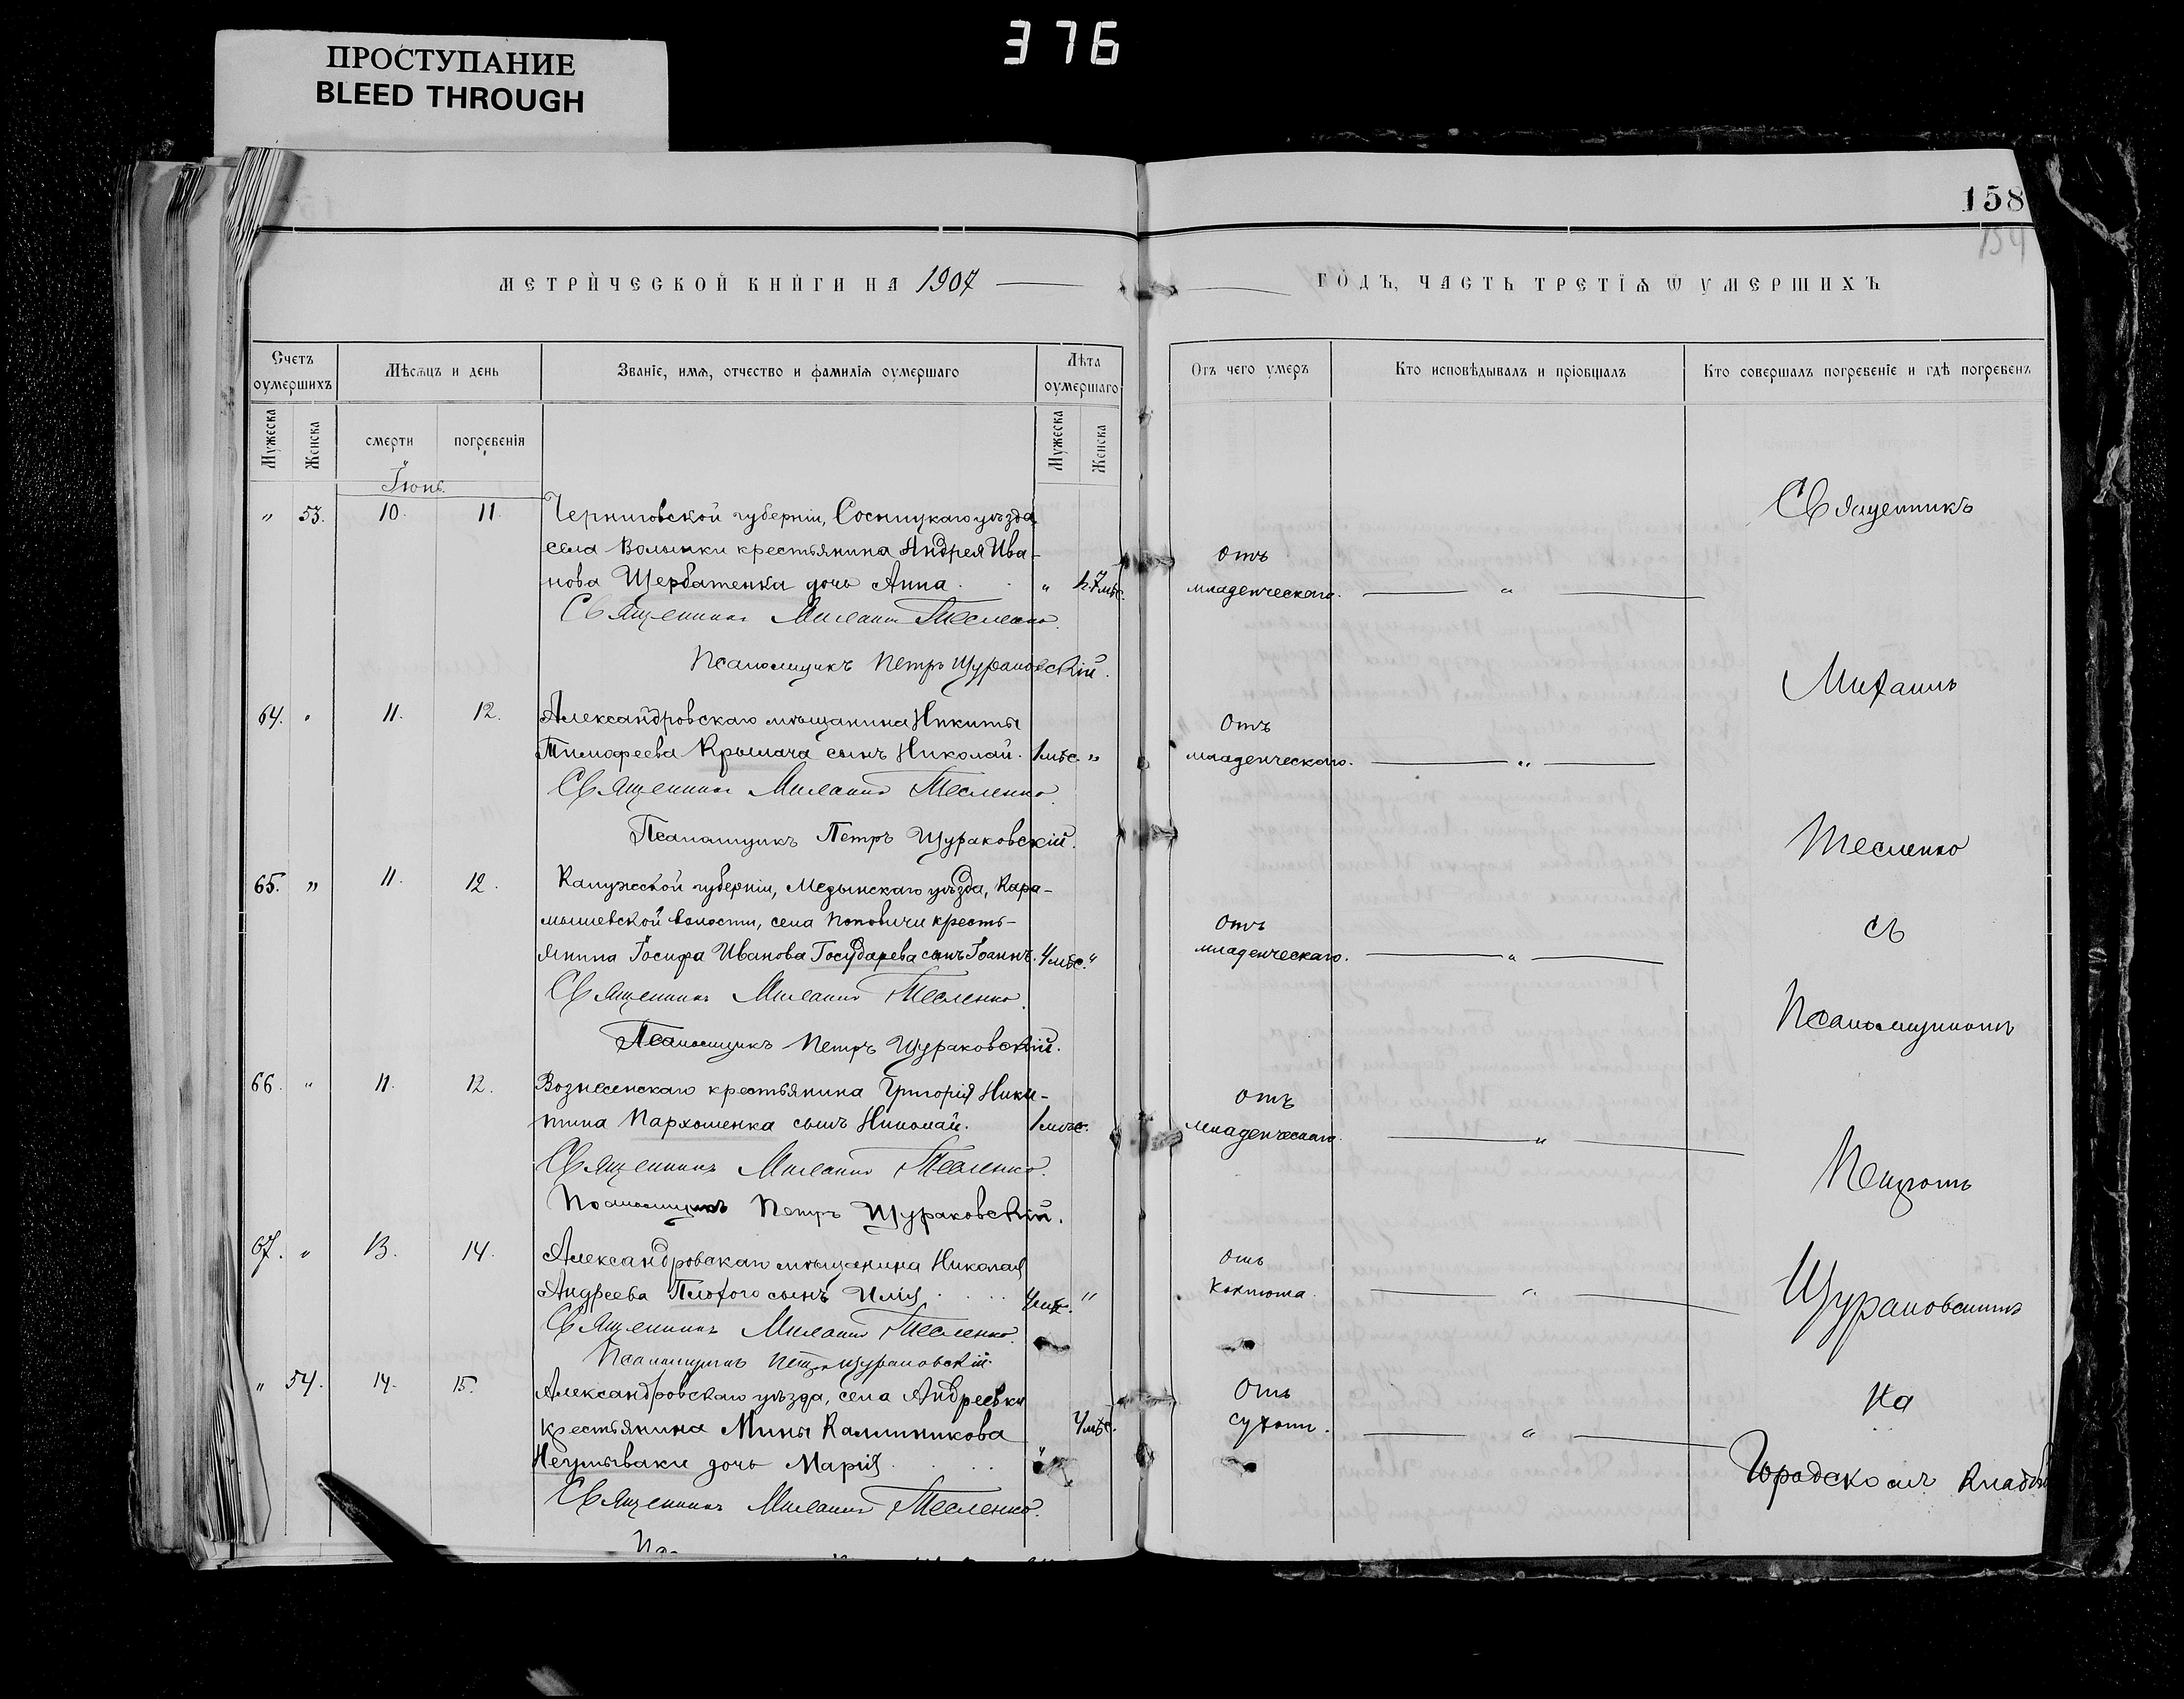 376
ПРОСТУПАНИЕ
BLEED THROUGH
158
154
МЕТРИЧЕСКОЙ КНИГИ НА 1907
ГОДЪ, ЧАСТЬ ТРЕТІѦ Ѡ УМЕРШИХЪ
Счетъ оумершихъ
Мѣсѧцъ и день
Званіе, имѧ, отчество и фамиліѧ оумершаго
Лѣта оумершаго
Отъ чего умеръ
Кто исповѣдывалъ и пріобщалъ
Кто совершалъ погребеніе и гдѣ погребенъ
Мужеска
Женска
смерти
погребенія
Мужеска
Женска
Іюнь
" 53. 10. 11. Черниговской губерніи, Сосницкаго уѣзда,
села Волынки крестьянина Андрея Ива-
нова Щербатенка дочь Анна " 7 мѣс.
Отъ
младенческаго. "
Священникъ Михаилъ Тесленко.
Псаломщикъ Петръ Щураковскій.
64. " 11. 12. Александровскаго мѣщанина Никиты
Тимофеева Крымача сынъ Николай. 1 мѣс. "
Отъ
младенческаго. "
Священникъ Михаилъ Тесленко.
Псаломщикъ Петръ Щураковскій.
65. " 11. 12. Калужской губерніи, Медынскаго уѣзда, Кара-
мышевской волости, села Поповичи кресть-
янина Іосифа Иванова Государева сынъ Іоаннъ. 4 мѣс. "
Отъ
младенческаго. "
Священникъ Михаилъ Тесленко.
Псаломщикъ Петръ Щураковскій.
66. " 11. 12. Вознесенскаго крестьянина Григорія Ники-
тина Пархоменка сынъ Николай. 1 мѣс.
Отъ
младенческаго. "
Священникъ Михаилъ Тесленко.
Псаломщикъ Петръ Щураковскій.
67. " 13. 14. Александровскаго мѣщанина Николая
Андреева Плохого сынъ Илія 4 мѣс. "
Отъ
коклюша. "
Священникъ Михаилъ Тесленко.
Псаломщикъ Петръ Щураковскій.
" 54. 14. 15. Александровскаго уѣзда, села Андреевки
крестьянина Мины Калинникова
Неумываки дочь Марія " 4 мѣс.
Отъ
сухотъ. "
Священникъ Михаилъ Тесленко.
Священникъ
Михаилъ
Тесленко
съ
Псаломщикомъ
Петромъ
Щураковскимъ
На
Городскомъ